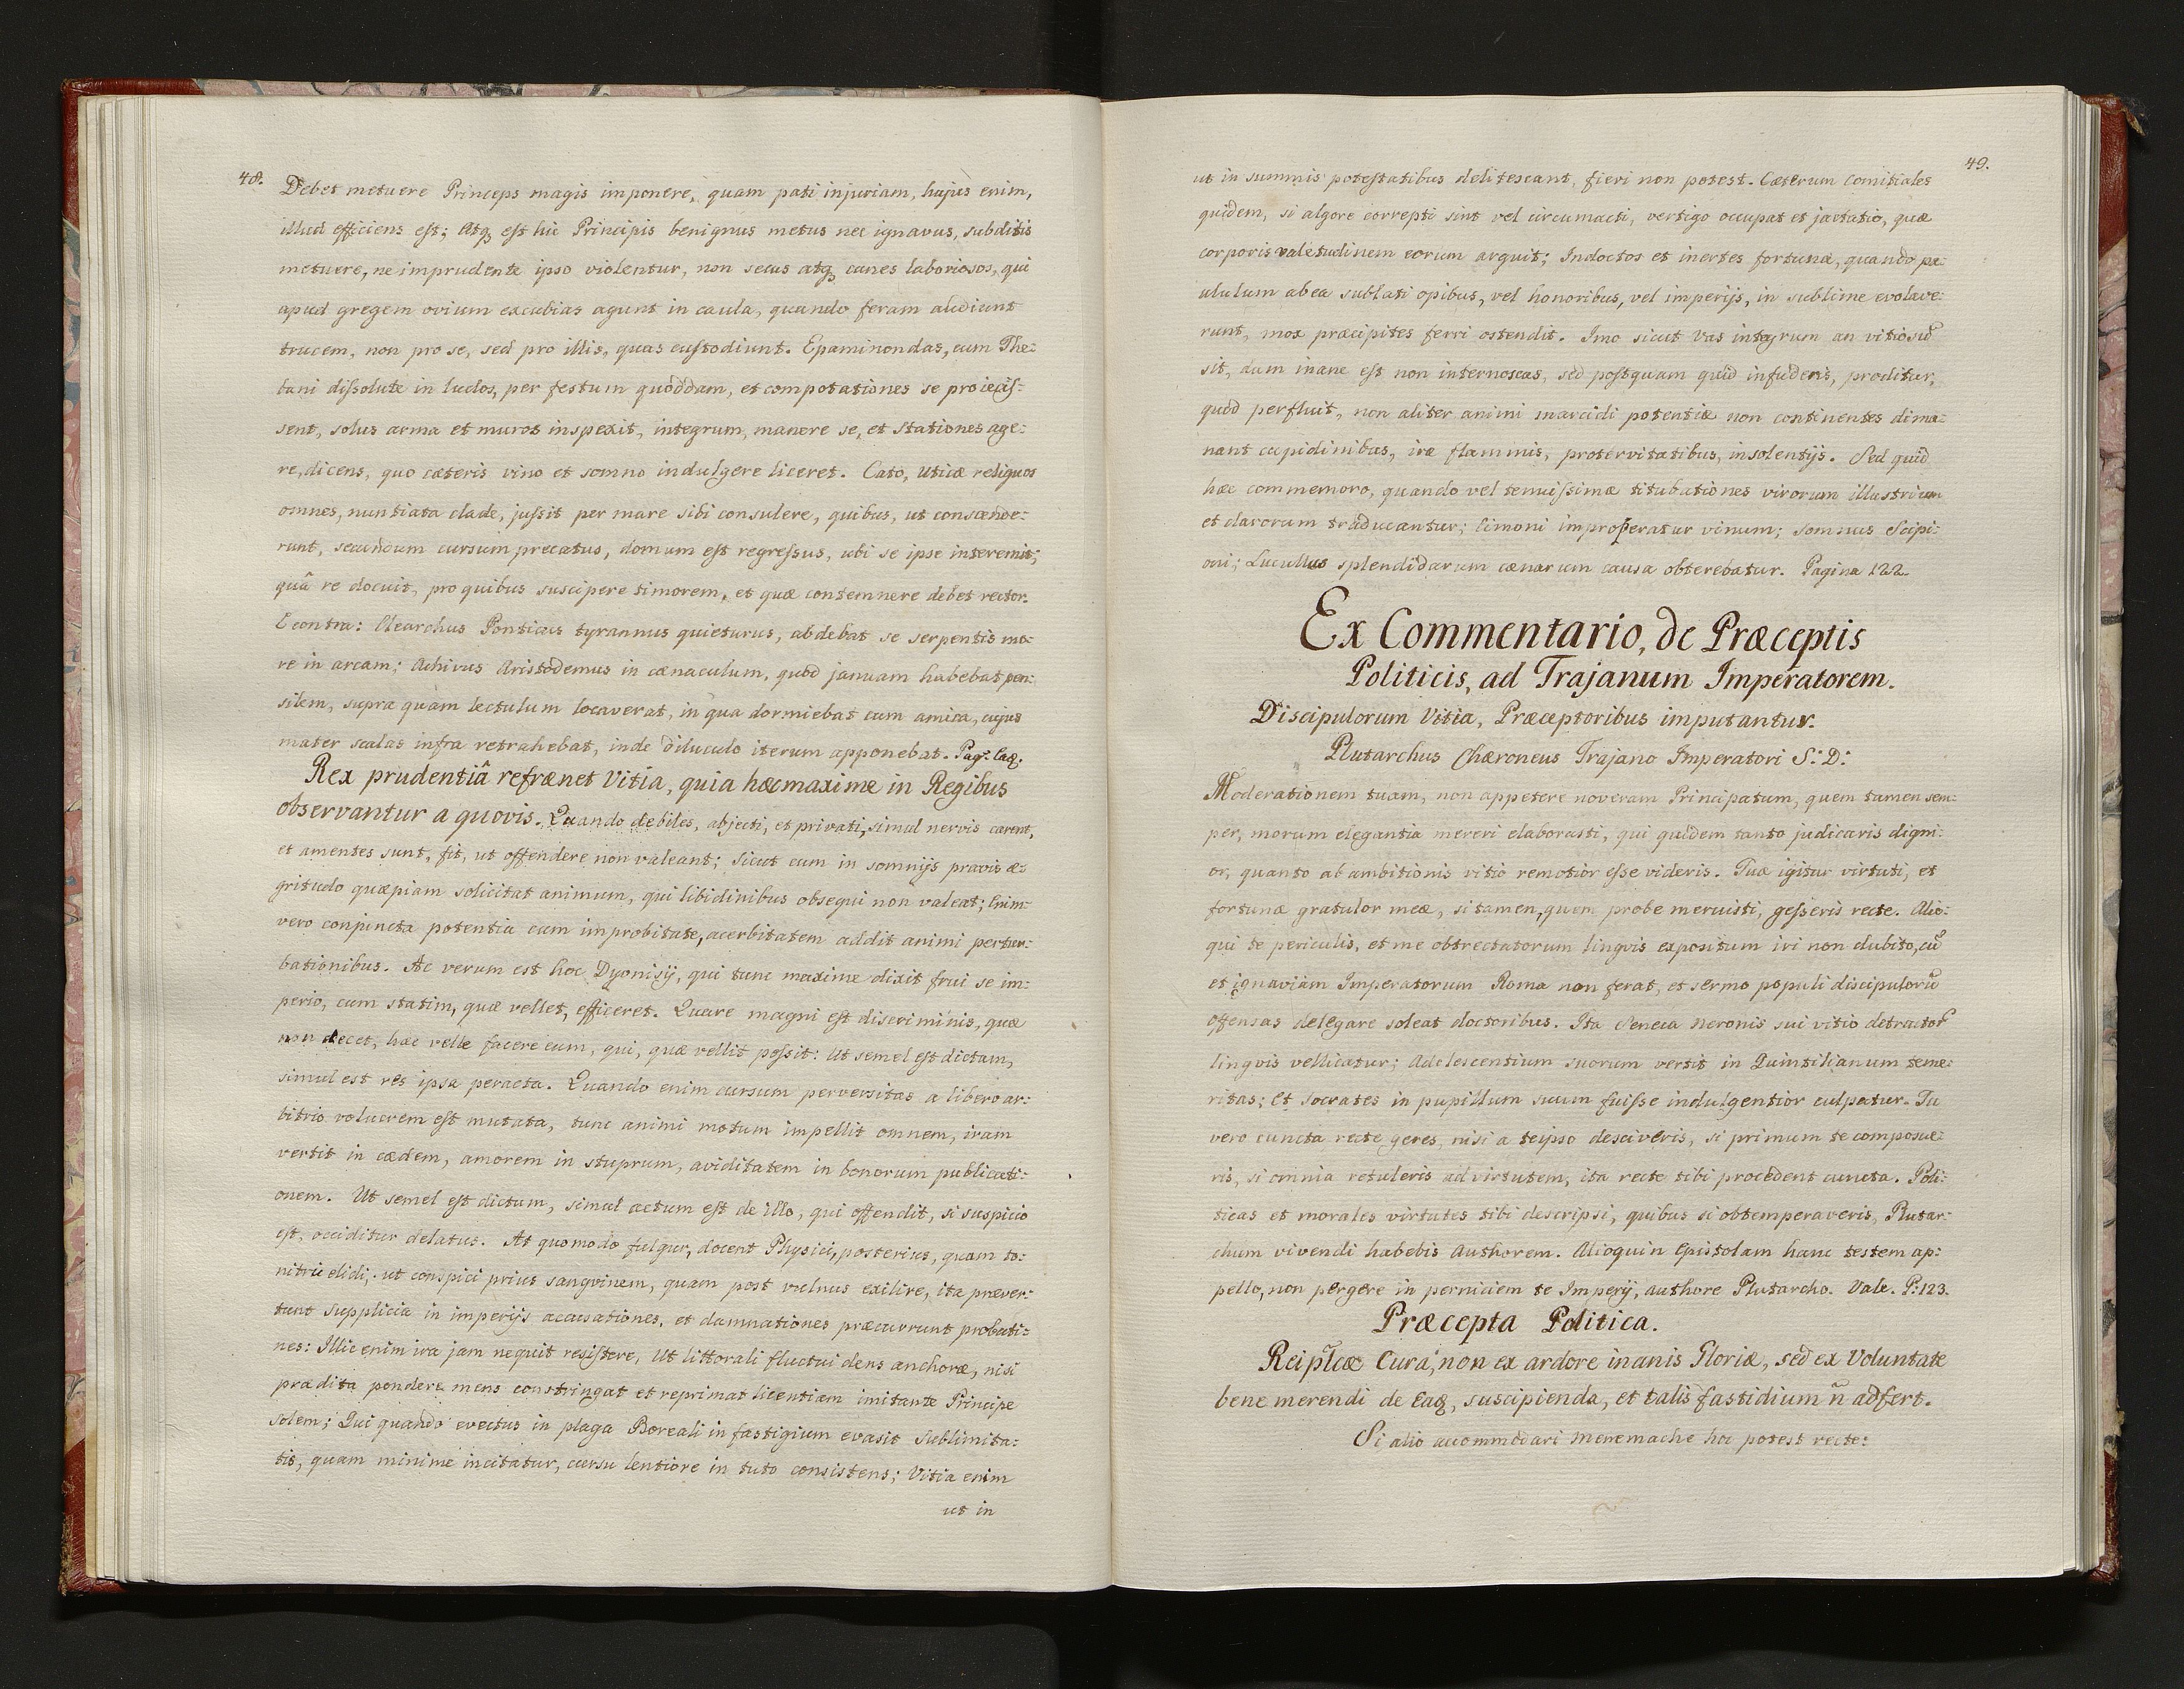 48.
Debet metuere Princeps magis imponere, quam pati injuriam, hujus enim,
illud efficiens est; Atq, est hic Principis benignus metus nec ignavus, subditis
metuere, ne imprudente ipso violentur, non secus atq, canes laboriosos, qui
apud gregem ovium excubias agunt in caula, quando feram audiunt
trucem, non pro se, sed pro illis, quas custodiunt. Epaminondas, cum The=
bani dissolute in ludos, per festum quoddam, et compotationes se proiecis=
sent, solus arma et muros inspexit, integrum, manere se, et stationes age=
re, dicens, quo cæteris vino et somno indulgere liceret. Cato, Uticæ reliquos
omnes, nuntiata clade, jussit per mare sibi consulere, quibus, ut conscende=
runt, secundum cursum precatus, domum est regressus, ubi se ipse interemit;
quâ re docuit, pro quibus suscipere timorem, et quæ contemnere debet rector.
E contra: Clearchus Ponticus tyrannus quieturus, abdebat se serpentis mo=
re in arcam; Achivus Aristodemus in cænaculum, quod januam habebat pen=
silem, supra quam lectulum locaverat, in qua dormiebat cum amica, cujus
mater scalas infra retrahebat, inde diluculo iterum apponebat. Pag: Eaq,.
Rex prudentiâ refrænet Vitia, quia hæc maxime in Regibus
observantur a quovis. Quando debiles, abjecti, et privati, simul nervis carent,
et amentes sunt, fit, ut offendere non valeant; Sicut cum in somnijs pravis æ=
gritudo quæpiam solicitat animum, qui libidinibus obsequi non valeat; Enim=
vero conjuncta potentia cum improbitate, acerbitatem addit animi pertur=
bationibus. Ac verum est hoc Dyonisij, qui tunc maxime dixit frui se im=
perio, cum statim, quæ vellet, efficeret. Quare magni est discriminis, quæ
non decet, hæc velle facere eum, qui, quæ vellit possit: Ut semel est dictam,
simul est res ipsa peracta. Quando enim cursum perversitas a libero ar=
bitrio volucrem est mutata, tunc animi motum impellit omnem, iram
vertit in cædem, amorem in stuprum, aviditatem in bonorum publicati=
onem. Ut semel est dictum, simul actum est de illo, qui offendit, si suspicio
est, occiditur delatus. At quomodo fulgur, docent Physici, posterius, quam to=
nitrii elidi, ut conspici prius sangvinem, quam post vulnus exilire, ita præver=
tunt Supplicia in imperijs accusationes, et damnationes præcurrunt probati=
nes: Illic enim ira jam nequit resistere, Ut littorali fluctui dens anchoræ, nisi
prædita pondere mens constringat et reprimat licentiam imitante Principe
solem; Qui quando evectus in plaga Boreali in fastigium evasit Sublimita=
tis, quam minime incitatur, cursu lentiore in tuto consistens; Vitia enim
ut in
49.
ut in summis potestatibus delitescant, fieri non potest. Cæterum Comitiales
quidem, si algore correpti sint vel circumacti, vertigo occupat et jactatio, quæ
corporis valetudinem eorum arguit; Indoctos et inertes fortuna, quando pa=
ululum ab ea sublati opibus, vel honoribus, vel imperijs, in sublime evolave=
runt, mox præcipites ferri ostendit. Imo sicut Vas integrum an vitiosũ
sit, dum inane est non internoscas, sed postquam quid infuderis, proditur,
quod perfluit, non aliter animi marcidi potentiæ non continentes dima=
nant cupidinibus, iræ flammis, protervitatibus, insolentijs. Sed quid
hæc commemoro, quando vel tenuissimæ titubationes virorum illustrium
et clarorum traducantur; Cimoni improperatur vinum; Somnus Scipi=
oni; Lucullus splendidarum cænarum causa obterebatur. Pagina 122.
Ex Commentario, de Præceptis
Politicis, ad Trajanum Imperatorem.
Discipulorum Vitia, Præceptoribus imputantur.
Plutarchus Chæroneus Trajano Imperatori S: D:
Moderationem tuam, non appetere noveram Principatum, quem tamen sem=
per, morum elegantia mereri elaborasti, qui quidem tanto judicaris digni=
or, quanto ab ambitionis vitio remotior esse videris. Tuæ igitur virtuti, et
fortunæ gratulor meæ, si tamen, quem probe meruisti, gesseris recte. Alio=
qui te periculis, et me obtrectatorum lingvis expositum iri non dubito, cũ
et ignaviam Imperatorum Roma non ferat, et sermo populi discipulorũ
offensas delegare soleat doctoribus. Ita Seneca Neronis sui vitio detractor
lingvis vellicatur; Adolescentium suorum vertit in Quintilianum teme=
ritas; Et Socrates in pupillum suum fuisse indulgentior culpatur. Tu
vero cuncta recte geres, nisi a teipso desciveris, si primum te composue=
ris, si omnia retuleris ad virtutem, ita recte tibi procedent cuncta. Poli=
ticas et morales virtutes tibi descripsi, quibus si obtemperaveris, Plutar=
chum vivendi habebis Authorem. Alioquin Epistolam hanc testem ap=
pello, non pergere in perniciem te Imperij, authore Plutarcho. Vale. P: 123.
Præcepta Politica.
Reip̃lcæ Cura, non ex ardore inanis Gloriæ, sed ex Voluntate
bene merendi de Eaq, suscipienda, et talis fastidium ñ adfert.
Si alio accommodari Menemache hoc potest recte: